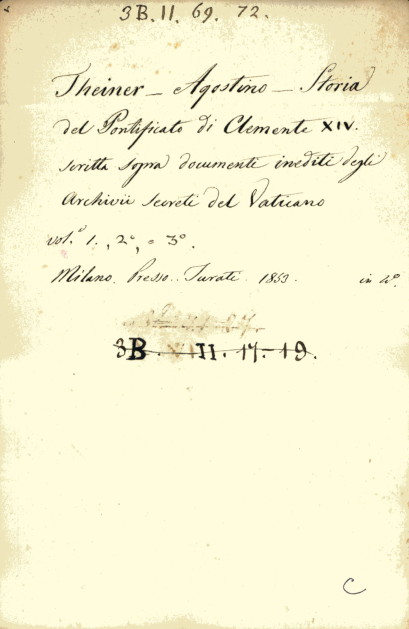 3B. II. 69. 72.
Theiner — Agostino — Storia
del Pontificato di Clemente XIV.
scritta sopra documenti inediti degli
Archivii secreti del Vaticano
vol.i 1., 2°, e 3°.
Milano. Presso. Turati. 1853. in 4°.
3B. XI II. 17-19.
C